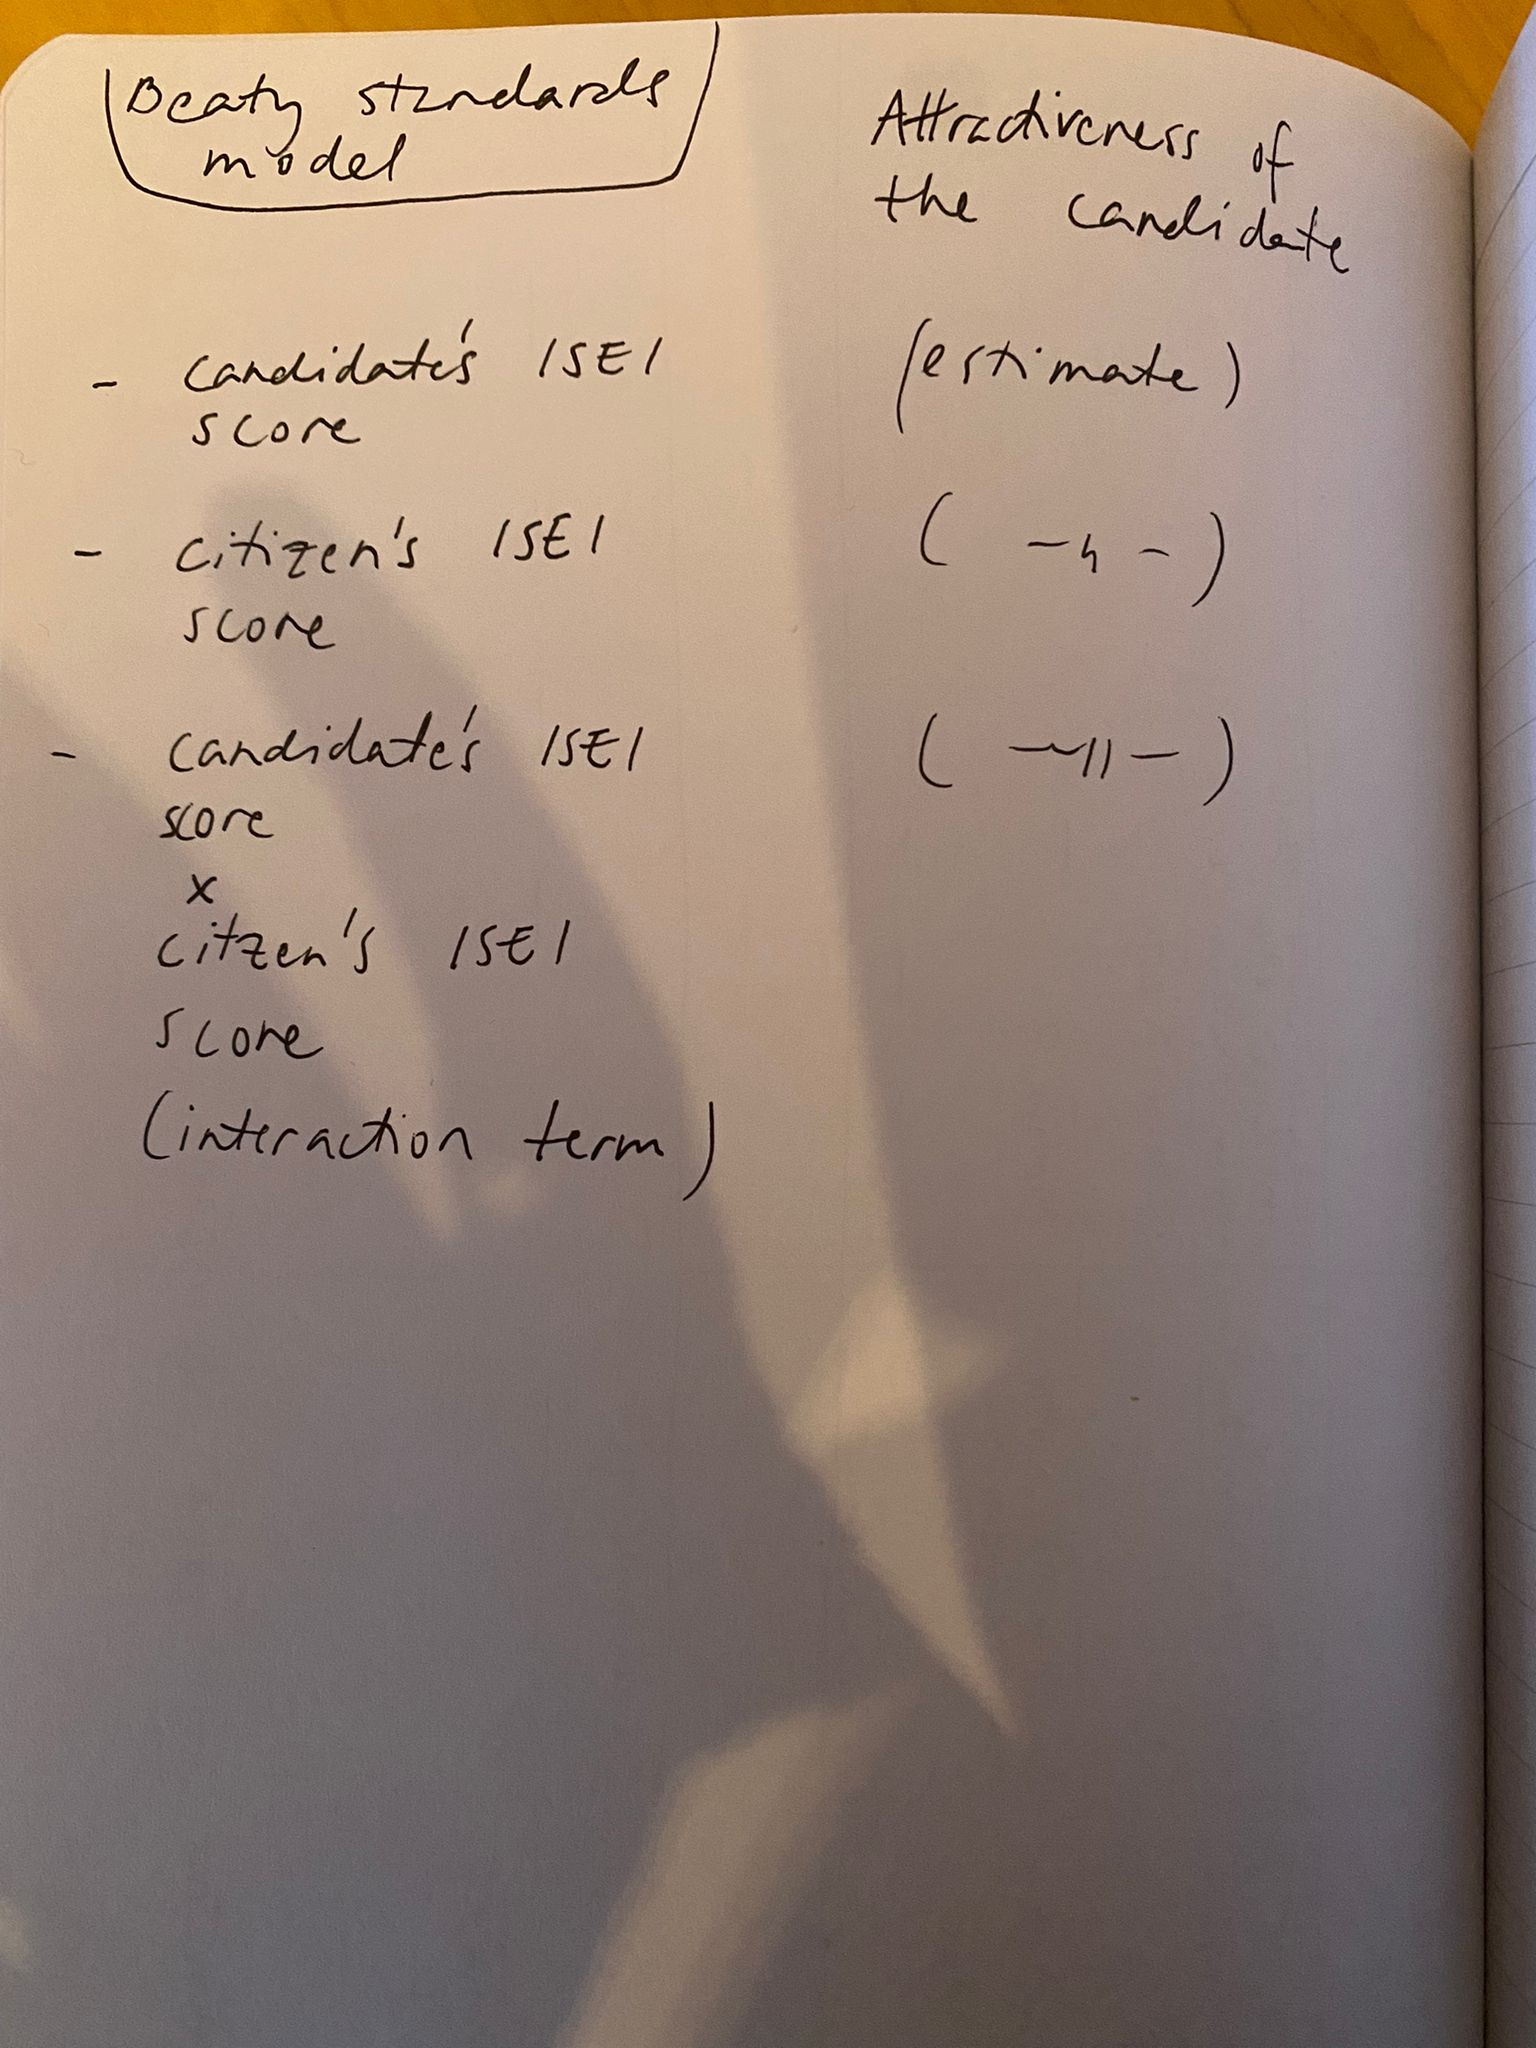 Beaty standards
model
Attractiveness of
the candidate
- candidate's ISEI
score
(estimate)
- citizen's ISEI
score
( -"- )
- candidate's ISEI
score
x
citzen's ISEI
score
(interaction term)
( -"- )